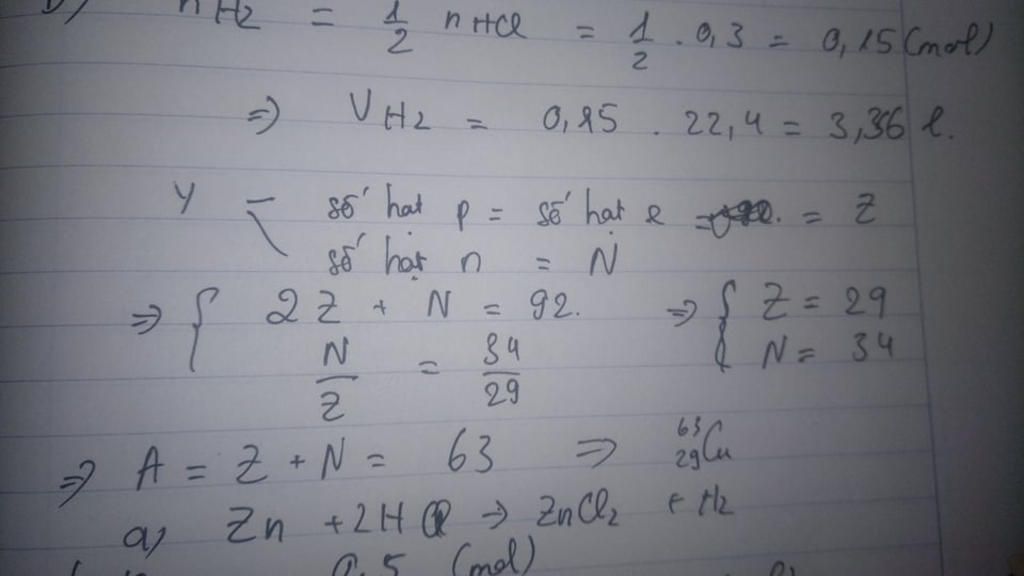 n H2 = 1/2 n HCl = 1/2 . 0,3 = 0,15 (mol)
=> V H2 = 0,15 . 22,4 = 3,36 l.
Y số hạt p = số hạt e = = Z
số hạt n = N
=> { 2Z + N = 92. => { Z = 29
N/Z = 34/29 N = 34
=> A = Z + N = 63 => ⁶³₂₉Cu
a, Zn + 2HCl -> ZnCl2 + H2
(mol)